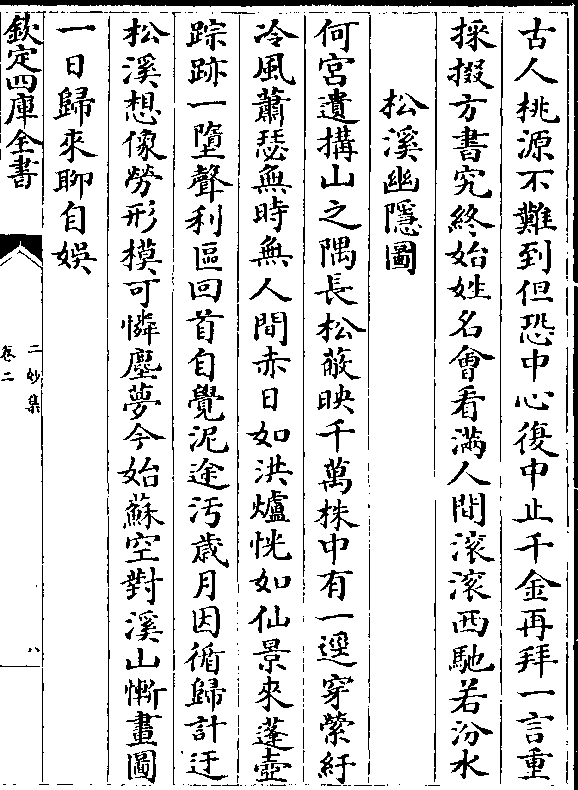 古人桃源不難到但恐中心復中止千金再拜一言重
採掇方書究終始姓名會看滿人間滾滾西馳若汾水
松溪幽隱圖
何宮遺搆山之隅長松蔽映千萬株中有一逕穿縈紆
冷風蕭瑟無時無人間赤日如洪爐恍如仙景來蓬壺
踪跡一墮聲利區回首自覺泥途汚歲月因循歸計迂
松溪想像勞形摸可憐塵夢今始蘇空對溪山慚畫圖
一日歸來聊自娛
欽定四庫全書
二妙集
卷二
八